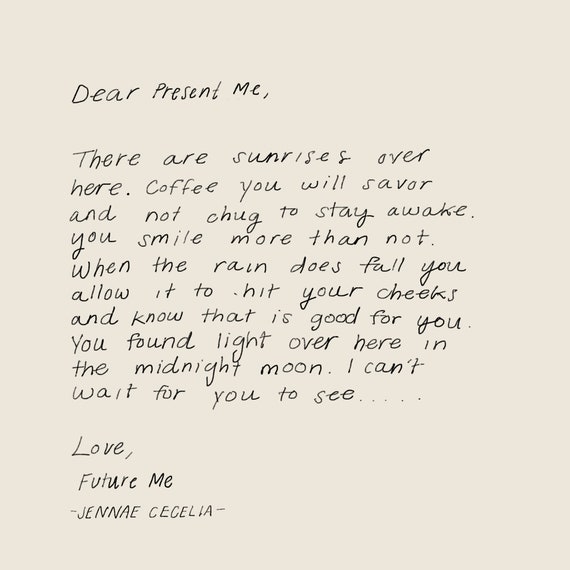 Dear Present Me,
There are sunrises over
here. Coffee you will savor
and not chug to stay awake.
you smile more than not.
When the rain does fall you
allow it to hit your cheeks
and know that is good for you.
You found light over here in
the midnight moon. I can't
wait for you to see.....
Love,
Future Me
-JENNAE CECELIA-